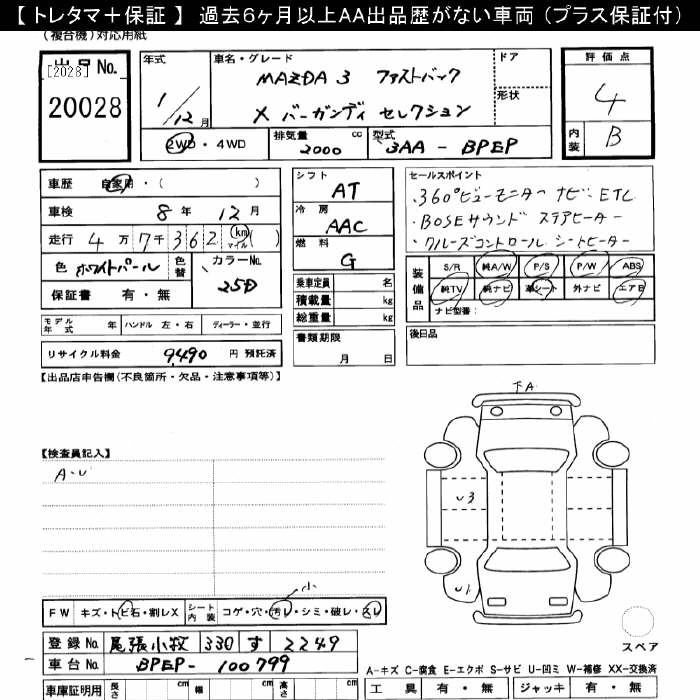 【 トレタマ＋保証 】 過去6ヶ月以上AA出品歴がない車両 (プラス保証付)
(複合機)対応用紙
出品 No.
[2028]
20028
年式
1/12月
車名・グレード
MAZDA 3 ファストバック
X バーガンディ セレクション
ドア
形状
評価点
4
内装
B
2WD・4WD
排気量
2000 cc
型式
3AA - BPEP
車歴 自家用・( )
車検 8 年 12 月
走行 4 万 7 千 3 6 2 km マイル ( )
色 ホワイトパール 色替
カラーNo.
25D
保証書 有・無
シフト
AT
冷房
AAC
燃料
G
乗車定員 名
積載量 kg
総重量 kg
セールスポイント
・360°ビューモニター ナビ ETC
・BOSEサウンド ステアヒーター
・クルーズコントロール シートヒーター
装備品
S/R 純A/W P/S P/W ABS
純TV 純ナビ 革シート 外ナビ エアB
ナビ型番：
モデル年式 年 ハンドル 左・右 ディーラー・並行
書類期限
月 日
後日品
リサイクル料金 9490 円 預託済
【出品店申告欄(不良箇所・欠品・注意事項等)】
下A
【検査員記入】
A・U
U3
U1
小
FW キズ・トビ石・割レX シート内装 コゲ・穴・汚レ・シミ・破レ・スレ
登録 No. 尾張小牧 330 す 2249
車台 No. BPEP- 100799
スペア
A-キズ C-腐食 E-エクボ S-サビ U-凹ミ W-補修 XX-交換済
車庫証明用 長さ cm 幅 cm 高さ cm
工具 有・無 ジャッキ 有・無